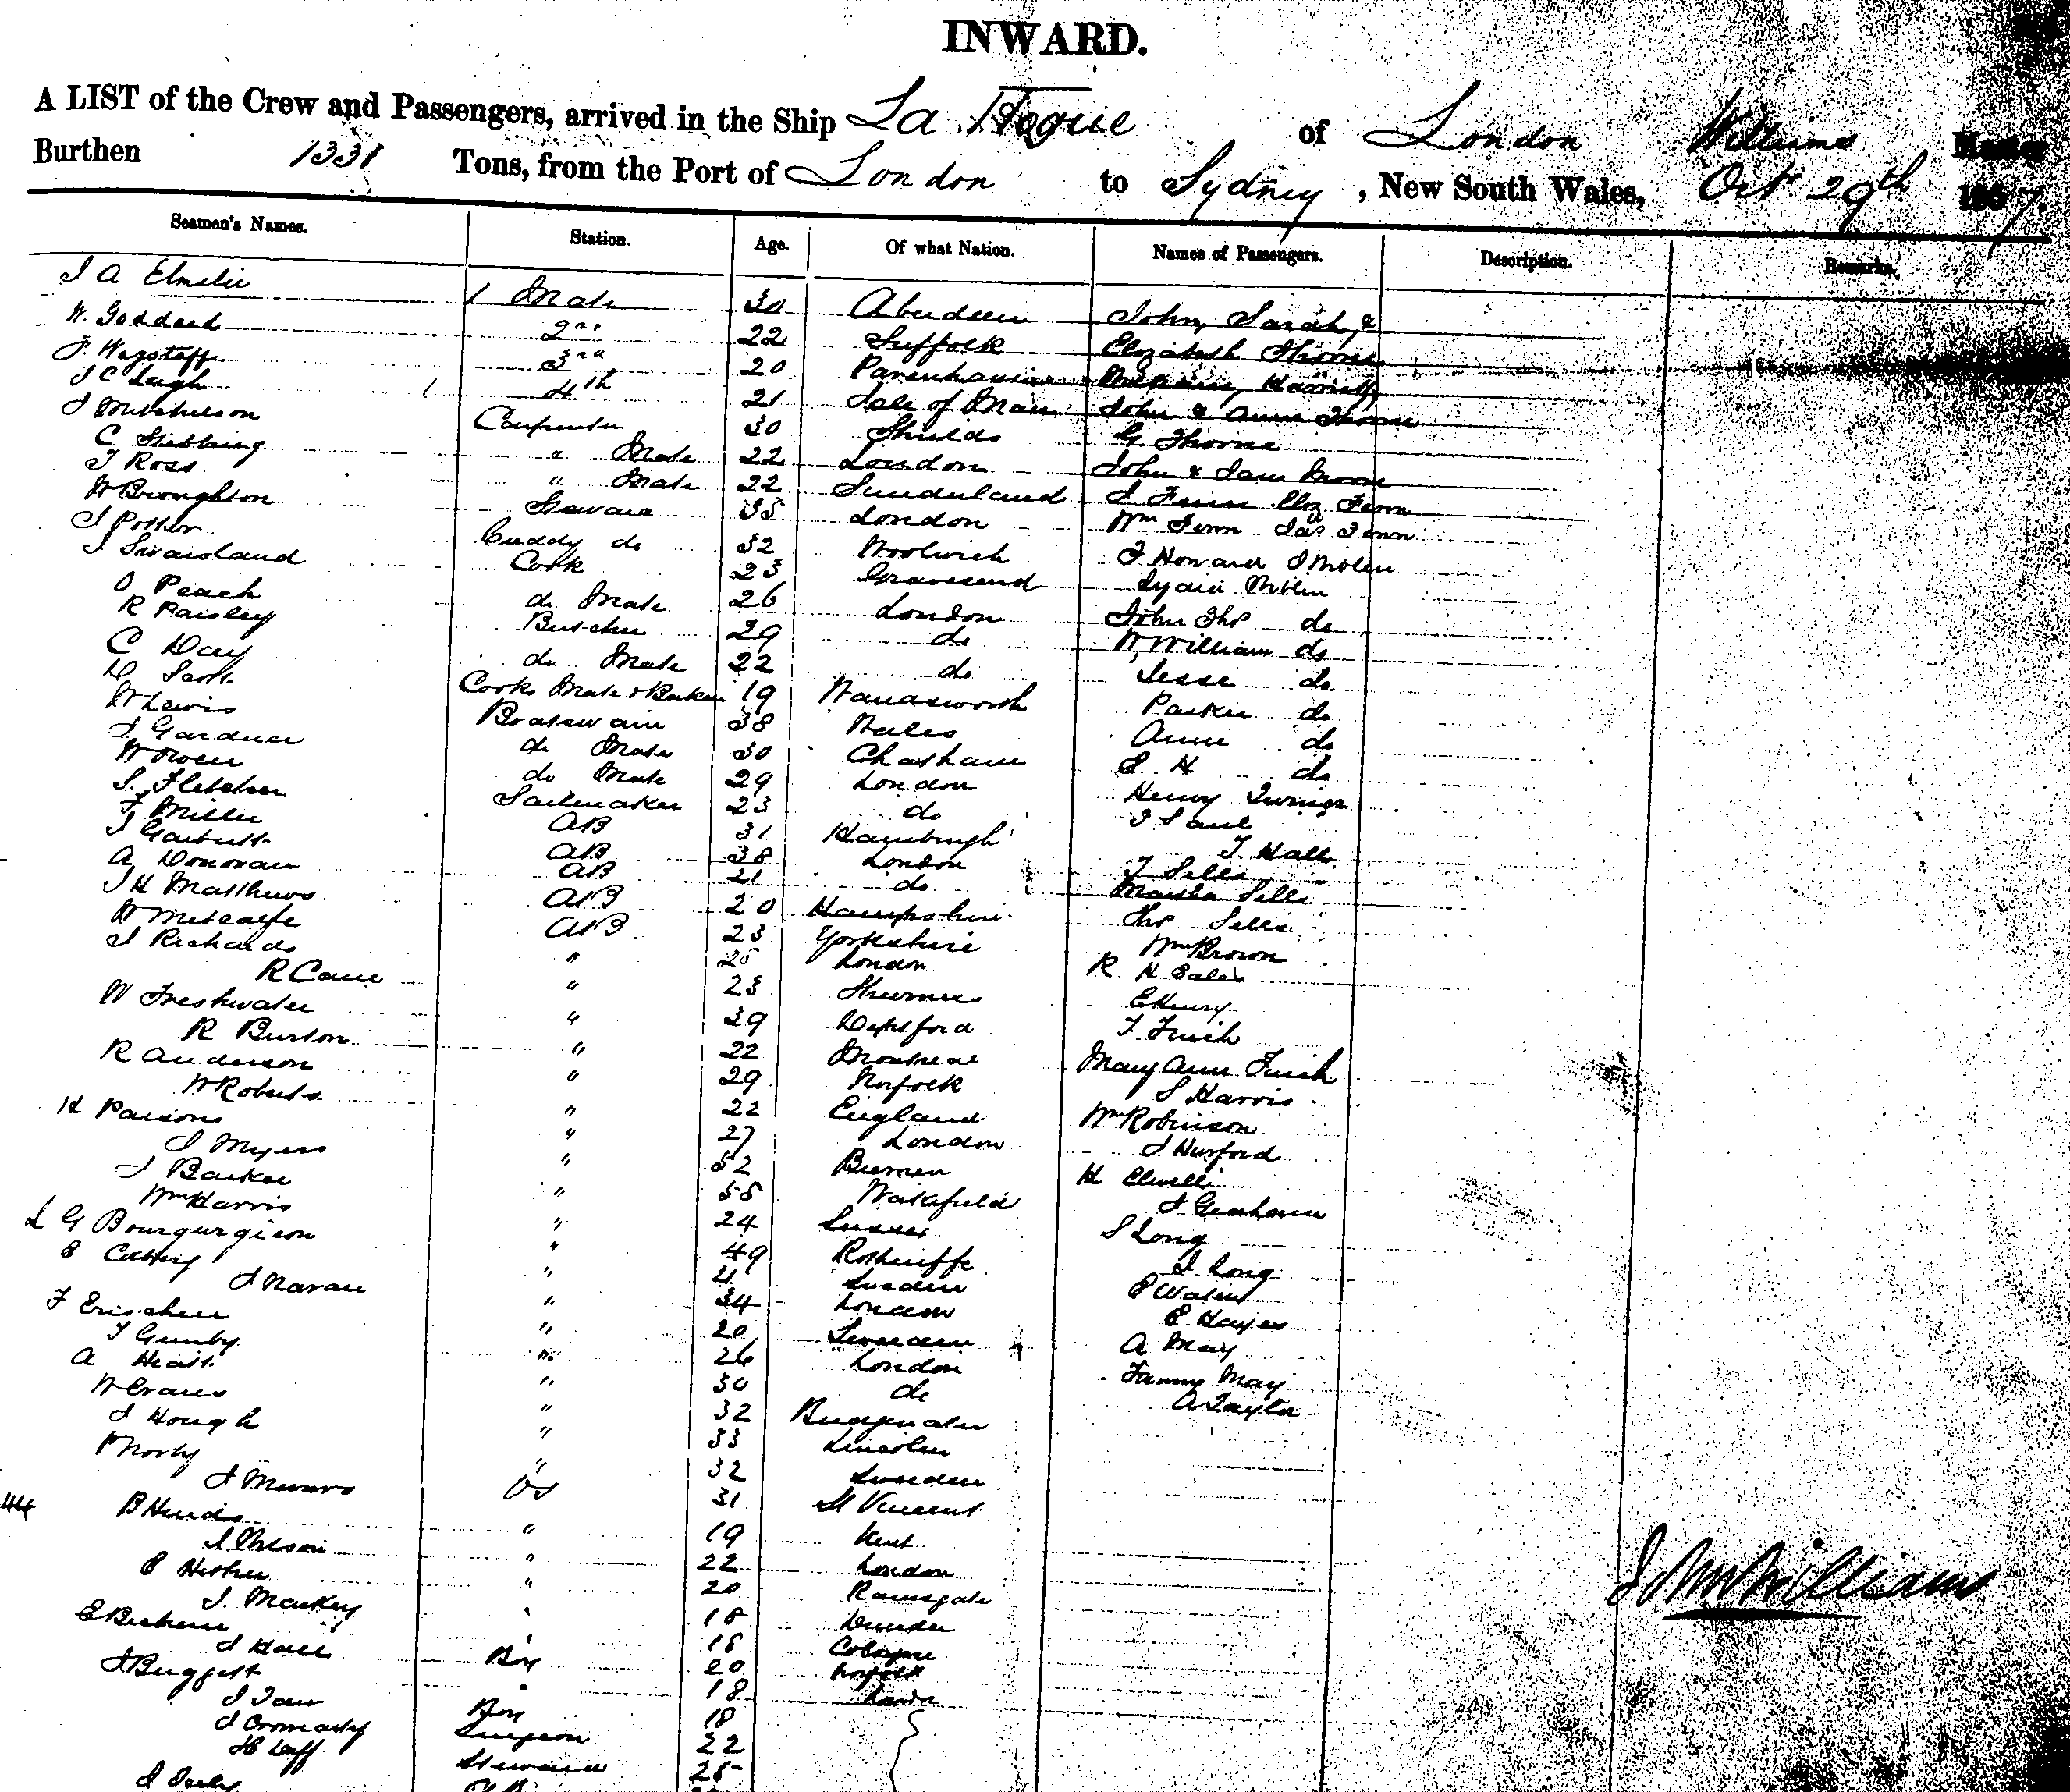 INWARD.
A LIST of the Crew and Passengers, arrived in the Ship La Hogue of London Williams Master
Burthen 1331 Tons, from the Port of London to Sydney, New South Wales, Oct 29th 1867.
Seamen's Names. Station. Age. Of what Nation. Names of Passengers. Description. Remarks.
J A. Elmslie 1 Mate 30 Aberdeen John, Sarah, &
W. Goddard 2nd 22 Suffolk Elizabeth Thorne
F. Wagstaff 3rd 20
J C Leigh 4th 21 Isle of Man John & Anne Thorne
J Mitchelson Carpenter 30 Shields G Thorne
C Stebbing " Mate 22 London John & Jane
T Ross " Mate 22 Sunderland J Fenn Eliz Fenn
W Broughton Steward 35 London Wm Fenn Jas Fenn
J Potter Cuddy do 32 Woolwich J Howard J
J Swainsland Cook 23 Gravesend Lydia
J Peach do Mate 26 London John Thos do
R Paisley Butcher 29 do W. William do
C Day do Mate 22 do Jesse do
D Scott Cooks Mate & Baker 19 Wandsworth Parker do
W Lewis Boatswain 38 Wales Anne do
J Gardner do Mate 30 Chatham E H do
W Owen do Mate 29 London Henry Turner
S. Fletcher Sailmaker 23 do J Saul
F Miller AB 31 Hamburgh T Hall
J Garbutt AB 38 London T Sells
A Donovan AB 21 do Martha Sells
J H Matthews AB 20 Hampshire Thos Sells
W Metcalfe AB 23 Yorkshire Wm Brown
J Richards " 25 London R H
R Cane " 23 E Henry
W Freshwater " 39 Deptford T Finch
R Burton " 22 Montreal Mary Ann Finch
R Anderson " 29 Norfolk S Harris
W Roberts " 22 England Wm Robinson
H Parsons " 27 London J Hurford
J Myers " 52 Bremen H Elwell
J Barker " 55 Wakefield J Graham
Wm Harris " 24 Sussex S Long
L G Bourgurgion " 49 J Long
E " 21 Sweden E
J " 34 London E Hayes
F " 20 Sweden A May
T Gumby " 26 London Fanny May
A Heath " 30 do A Taylor
W Evans " 32 Bridgwater
J Hough " 33 Lincoln
" 32 Sweden
J Munro OS 31 St Vincent
44 B Hinds " 19 Kent
J " 22 London
E " 20 Ramsgate
J. Mackey " 18 Dundee
E 18 Cologne
J Hall Boy 20 Norfolk
J Buggett " 18
J Boy 18
J Cromarty Surgeon 22
Steward 25
J
John Williams